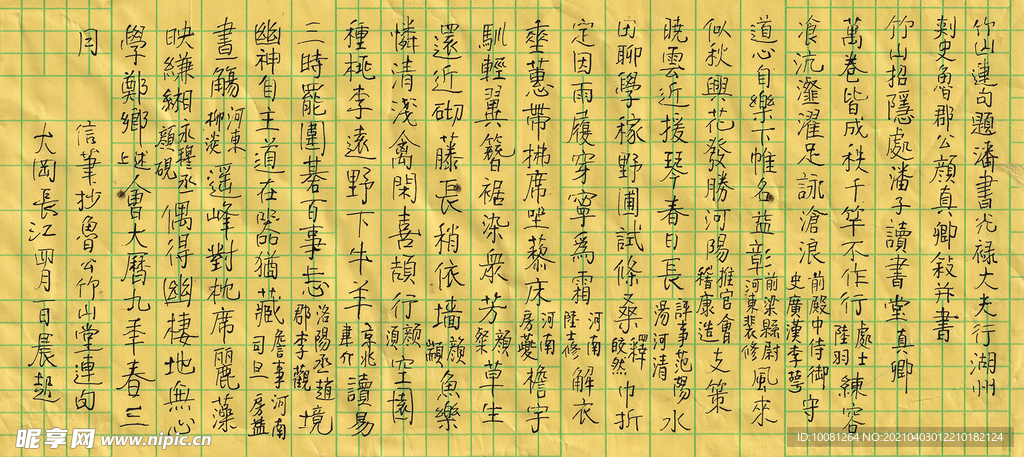 竹山連句題潘書光祿大夫行湖州
刺史魯郡公顏真卿敘并書
竹山招隱處潘子讀書堂真卿
萬卷皆成秩千竿不作行處士陸羽練容
滄沆瀣濯足詠滄浪前殿中侍御史廣漢李萼守
道心自樂下帷名益彰前梁縣尉河東裴修風來
似秋興花發勝河陽推官會稽康造支策
曉雲近援琴春日長評事范陽湯河清水
田聊學稼野圃試條桑釋皎然巾折
定因雨履穿寧為霜河南陸士修解衣
垂蕙帶拂席坐藜床河南房夔檐宇
馴輕翼簪裾染衆芳顏粲草生
還近砌藤長稍依墻顏顓魚樂
憐清淺禽閑喜頡行顏須空園
種桃李遠野下牛羊京兆韋介讀易
三時罷圍碁百事忘洛陽丞趙郡李觀境
幽神自王道在器猶藏詹事司直河南房益
晝觴河東柳淡遥峰對枕席麗藻
映縑緗永穆丞顏峴偶得幽棲地無心
學鄭鄉述上人會大曆九年春三
月
信筆抄魯公竹山堂連句
大岡長江四月百日晨起
昵享网 www.nipic.cn
ID:10081264 NO:20210403012210182124